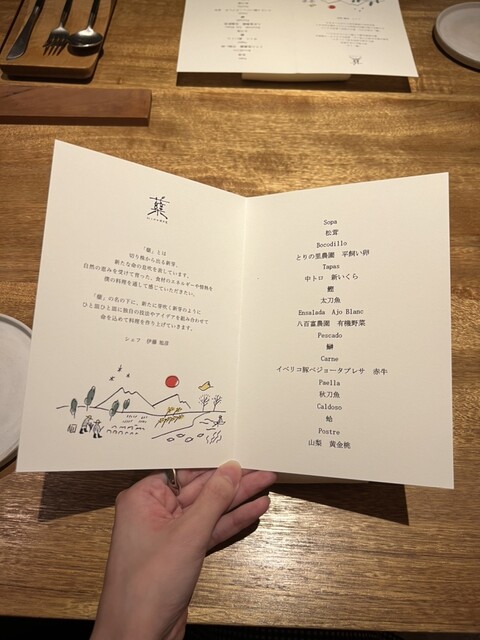 「蘖」とは
切り株から出る新芽。
新たな命の息吹を表しています。
自然の恵みを受けて育った、食材のエネルギーや情熱を
僕の料理を通して感じていただきたい。
「蘖」の名の下に、新たに芽吹く新芽のように
ひと皿ひと皿に独自の技法やアイデアを組み合わせて
命を込めて料理を作り上げていきます。
シェフ 伊藤
Sopa
松茸
Bocodillo
とりの里農園 平飼い卵
Tapas
中トロ 新いくら
鰹
太刀魚
Ensalada Ajo Blanc
八百富農園 有機野菜
Pescado
Carne
イベリコ豚ベジョータプレサ 赤牛
Paella
秋刀魚
Caldoso
蛤
Postre
山梨 黄金桃